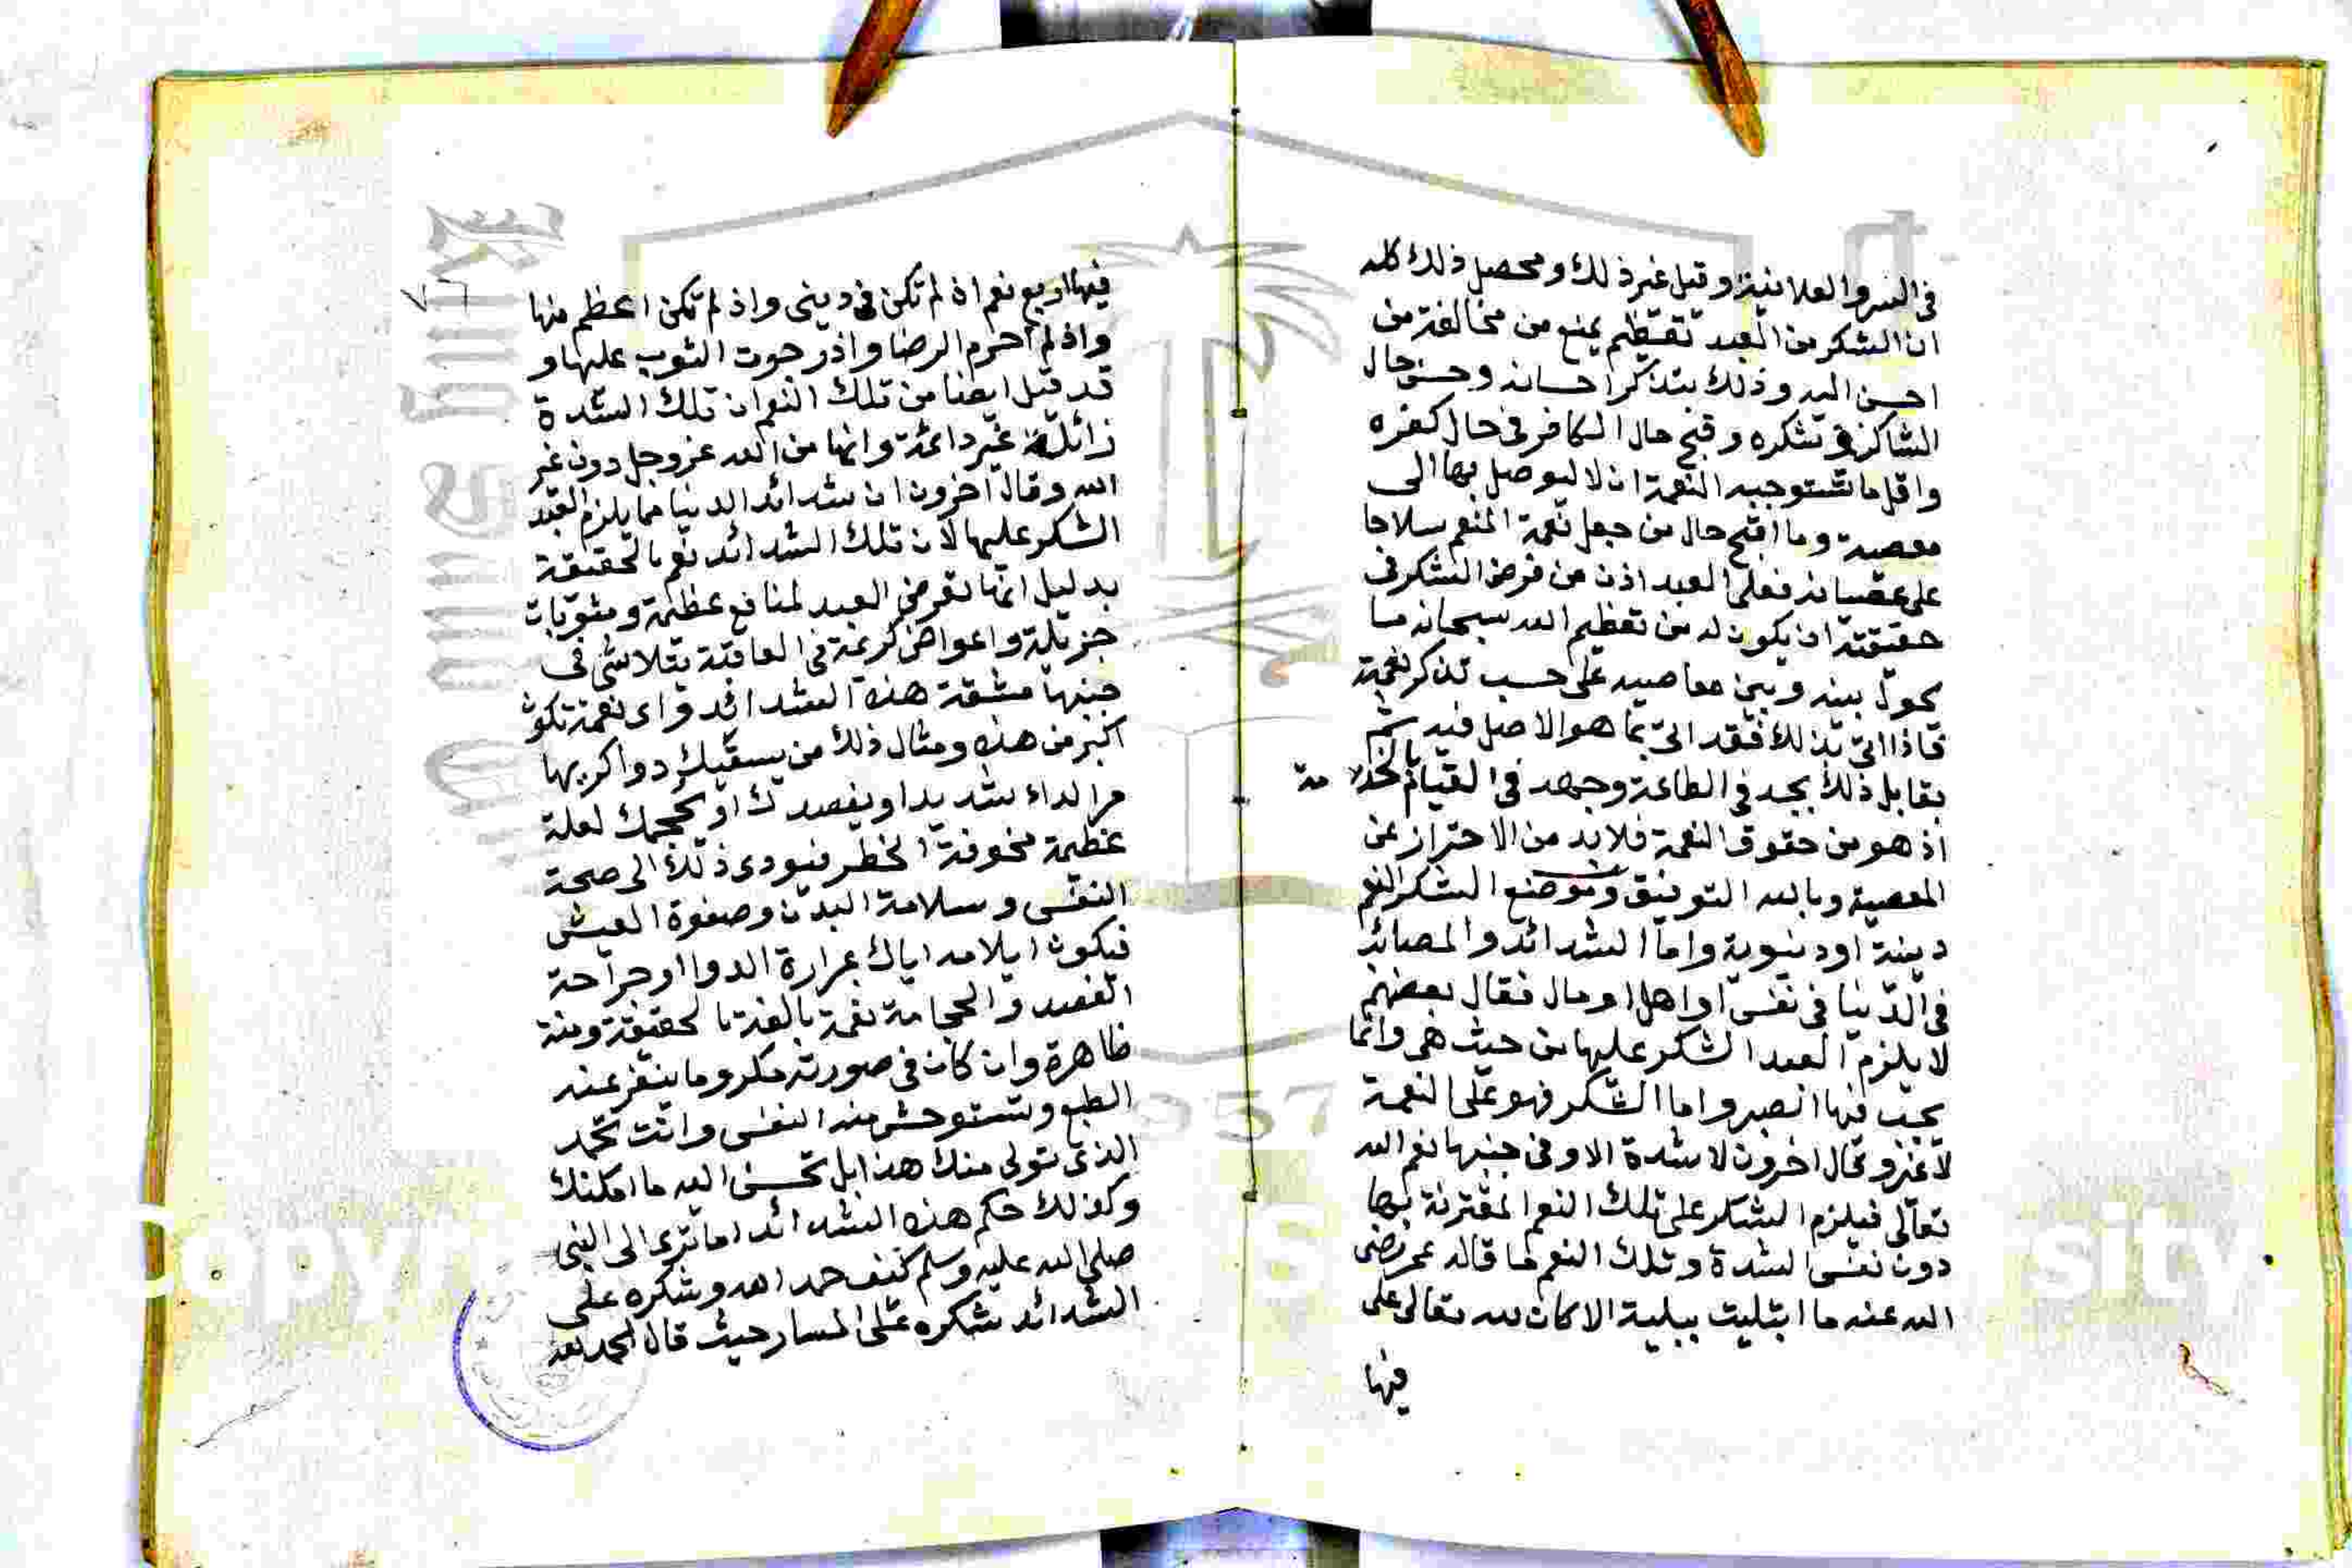 فى السر والعلانية وقيل غير ذلك ومحصل ذلك كله
ان الشكر من العبد تعظيم يمنع من مخالفة من
احسن اليه وذلك بتذكر احسانه وحسن حال
الشاكر فى شكره وقبح حال الكافر فى حال كفره
واقل ما تستوجبه النعمة ان لا يتوصل بها الى
معصية وما اقبح حال من جعل نعمة المنعم سلاحا
على عصيانه فعلى العبد اذن من فرض الشكر فى
حقيقته ان يكون له من تعظيم الله سبحانه ما
يحول بينه وبين معاصيه على حسب تذكر نعمة
فاذا اتى بذلك فقد اتى بما هو الاصل فيه ثم
يقابل ذلك بجد فى الطاعة وجهد فى القيام بالخدمة
اذ هو من حقوق النعمة فلا بد من الاحتراز عن
المعصية وبالله التوفيق وموضع الشكر النعم
دينية او دنيوية واما الشدائد والمصائب
فى الدنيا فى نفس او اهل او مال فقال بعضهم
لا يلزم العبد الشكر عليها من حيث هى وانما
يجب فيها الصبر واما الشكر فهو على النعمة
لا غير وقال اخرون لا شدة الا وفى جنبها نعم الله
تعالى فيلزم الشكر على تلك النعم المقترنة بها
دون نفس الشدة وتلك النعم ما قاله عمر رضى
الله عنه ما ابتليت ببلية الا كان لله تعالى على
فيها
٧٦
فيها اربع نعم اذ لم تكن فى دينى واذ لم تكن اعظم منها
واذ لم احرم الرضا واذ رجوت الثوب عليها و
قد قيل ايضا من تلك النعم ان تلك الشدة
زائلة غير دائمة وانها من الله عز وجل دون غير
الله وقال اخرون ان شدائد الدنيا مما يلزم العبد
الشكر عليها لان تلك الشدائد نعم بالحقيقة
بدليل انها تعرض العبد لمنافع عظيمة ومثوبات
جزيلة واعواض كريمة فى العاقبة يتلاشى فى
جنبها مشقة هذه الشدائد واى نعمة تكون
اكبر من هذه ومثال ذلك من يسقيك دوا كريها
مرا لداء شديد او يفصدك او يحجمك لعلة
عظيمة مخوفة الخطر فيودى ذلك الى صحة
النفس وسلامة البدن وصفوة العيش
فيكون ايلامه اياك بمرارة الدوا او جراحة
الفصد والحجامة نعمة بالغة بالحقيقة ومنة
ظاهرة وان كان فى صورته مكروها ينفر عنه
الطبع وتستوحش منه النفس وانت تحمد
الذى تولى منك هذا بل تحسن اليه ما امكنك
وكذلك حكم هذه الشدائد اما ترى الى النبى
صلى الله عليه وسلم كيف حمد الله وشكره على
الشدائد شكره على المسار حيث قال الحمد لله